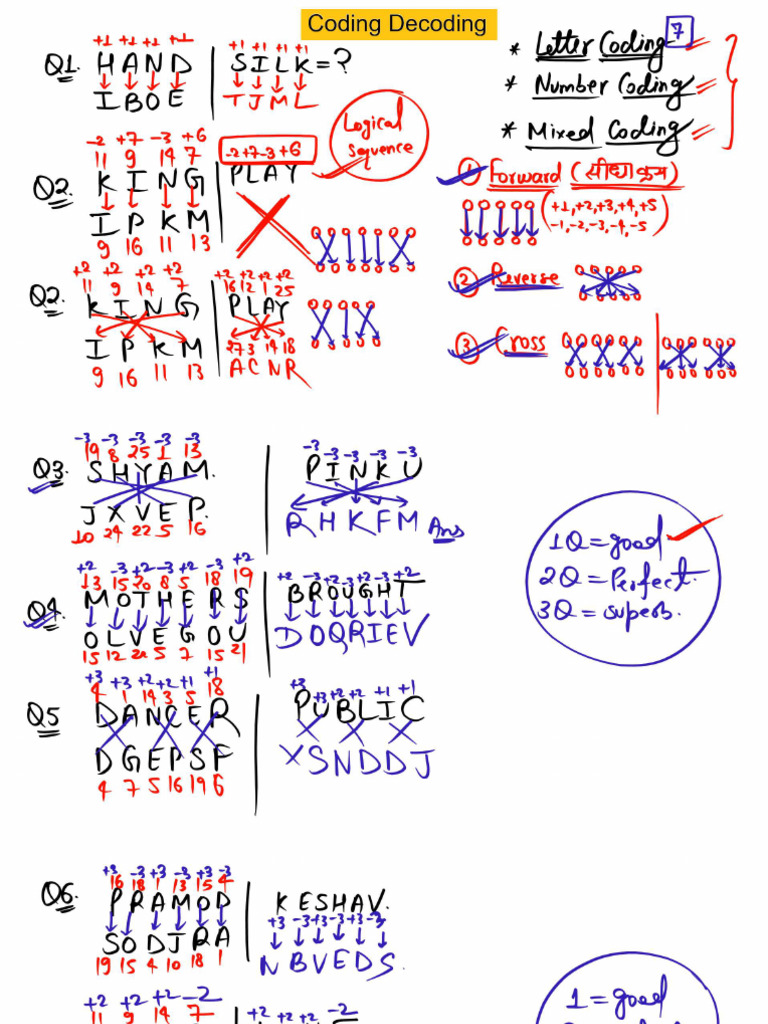 Coding Decoding
Q1. +1 +1 +1 +1
H A N D
I B O E
+1 +1 +1 +1
S I L K = ?
T J M L
* Letter Coding 7
* Number Coding
* Mixed Coding
Logical
sequence
Q2. -2 +7 -3 +6
11 9 14 7
K I N G
I P K M
9 16 11 13
-2+7-3+6
PLAY
① Forward (सीधा क्रम)
(+1,+2,+3,+4,+5
-1,-2,-3,-4,-5)
② Reverse
③ Cross
Q2. +2 +2 +2 +2
11 9 14 7
K I N G
I P K M
9 16 11 13
+2 +2 +2 +2
16 12 1 25
PLAY
27 3 14 18
A C N R
Q3. -3 -3 -3 -3 -3
19 8 25 1 13
S H Y A M.
J X V E P.
10 24 22 5 16
-3 -3 -3 -3 -3
P I N K U
R H K F M Ans
1Q = good
2Q = Perfect.
3Q = superb.
Q4. +2 -3 +2 -3 +2 -3 +2
13 15 20 8 5 18 19
M O T H E R S
O L V E G O U
15 12 22 5 7 15 21
+2 -3 +2 -3 +2 -3 +2
B R O U G H T
D O Q R I E V
Q5 +3 +3 +2 +2 +1 +1
4 1 14 3 5 18
D A N C E R
D G E P S F
4 7 5 16 19 6
+3 +3 +2 +2 +1 +1
P U B L I C
X S N D D J
Q6. +3 -3 +3 -3 +3 -3
16 18 1 13 15 4
P R A M O D
S O D J R A
19 15 4 10 18 1
K E S H A V.
+3 -3 +3 -3 +3 -3
N B V E D S.
+2 +2 +2 -2
11 9 14 7
+2 +2 +2 -2
1 = good